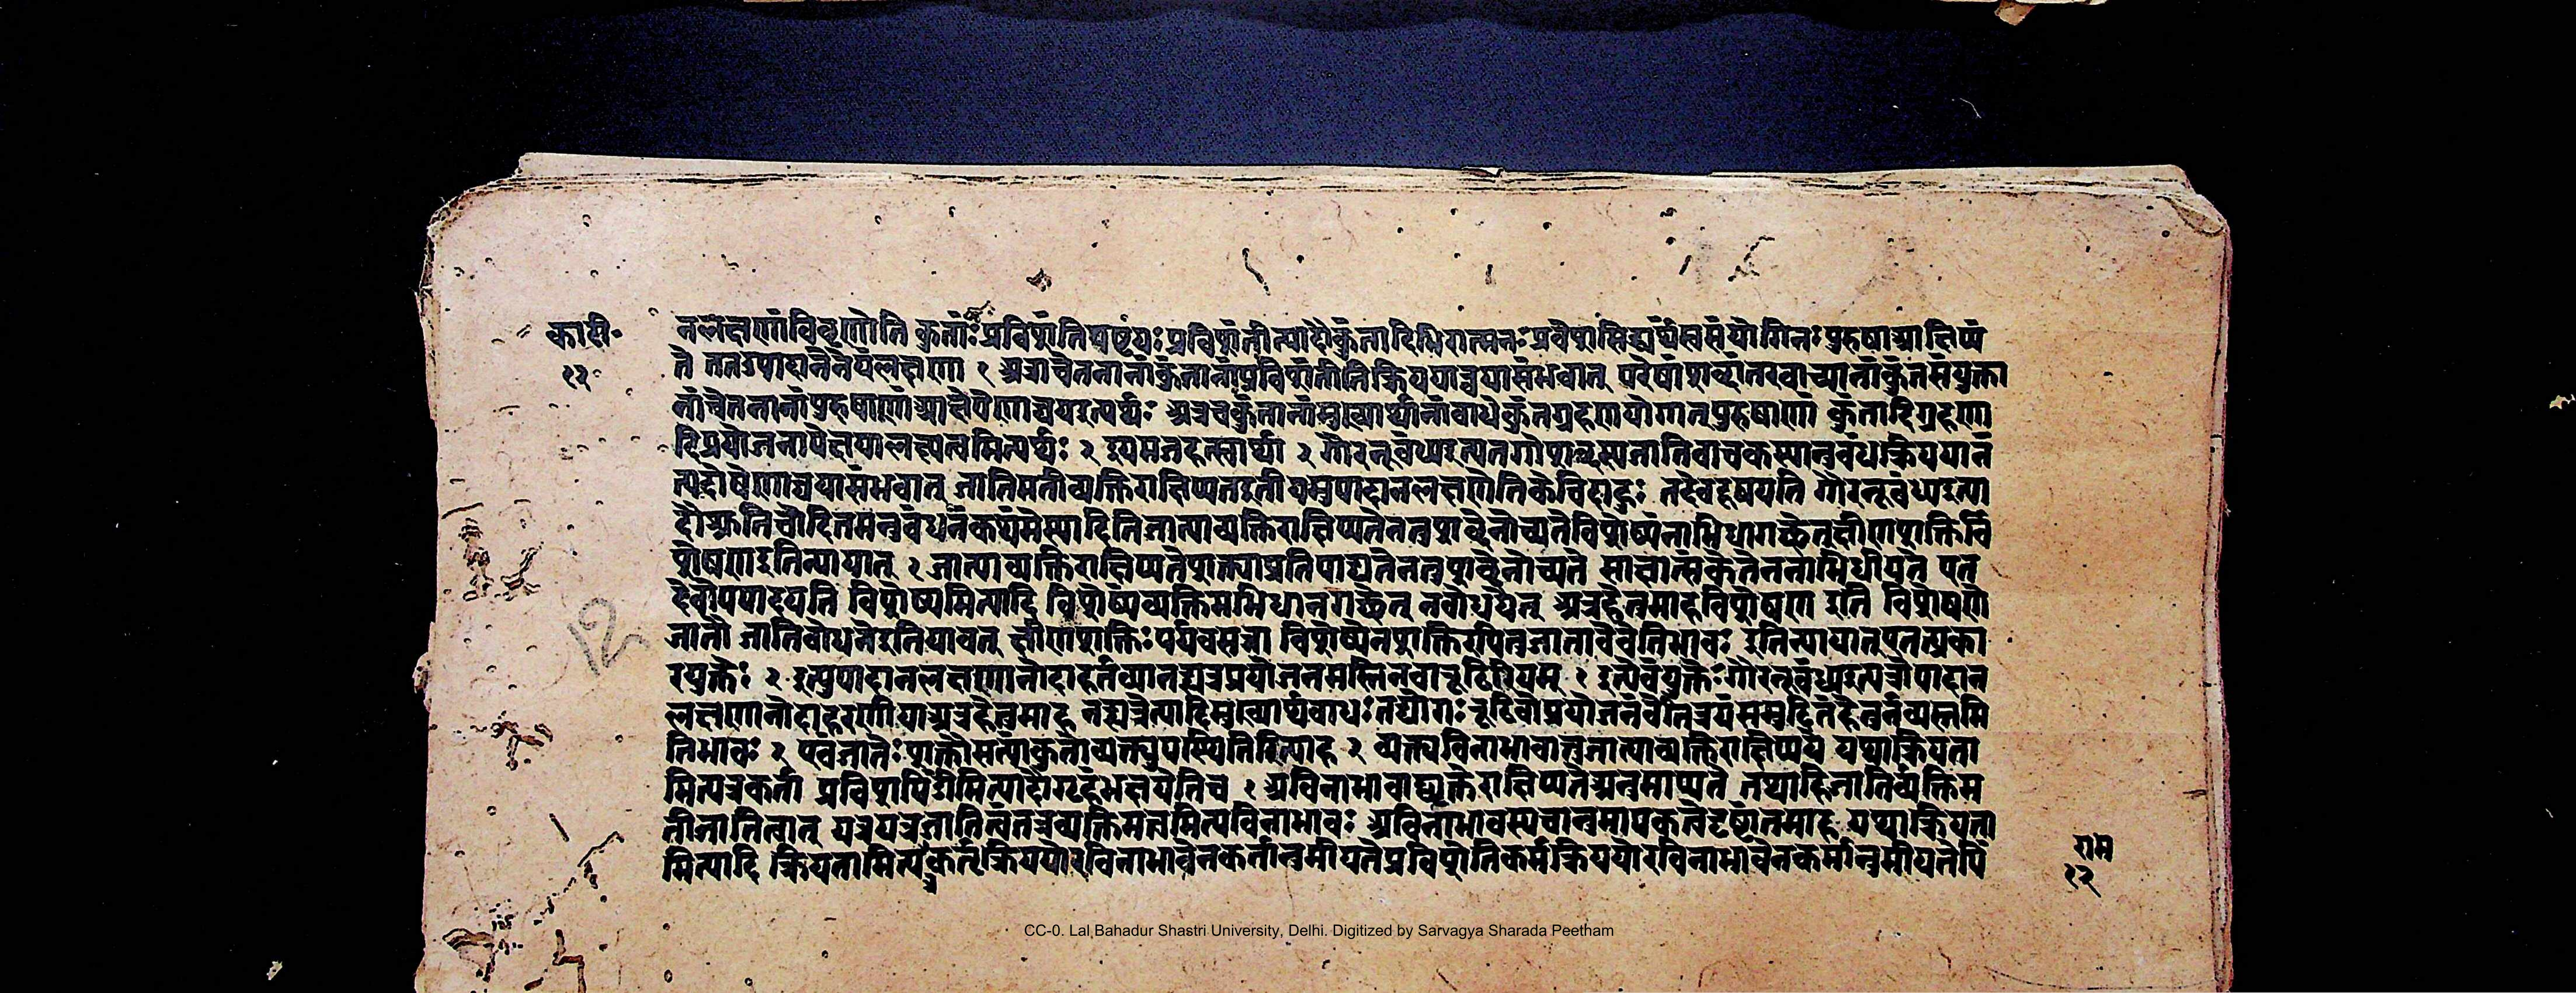 का टी॰
१२
नलक्षणां विवृणोति कुंताः प्रविशंति यष्टयः प्रविशंतीत्यादौ कुंतादिभिरात्मनः प्रवेशसिद्ध्यर्थं स्वसंयोगिनः पुरुषा आक्षिप्यं
ते तत उपादानेनेयं लक्षणा १ अत्राचेतनानां कुंतानां प्रविशंतीति क्रिययान्वयासंभवात् परेषां शब्दांतरवाच्यानां कुंतसंयुक्ता
नां चेतनानां पुरुषाणां आक्षेपेणान्वय इत्यर्थः अत्र च कुंतानां मुख्यार्थानां बाधे कुंतग्रहणयोगात् पुरुषाणां कुंतादिग्रहणा
दिप्रयोजनापेक्षया लक्ष्यत्वमित्यर्थः २ इयमजहत्स्वार्था २ गौरनुबंध्य इत्यत्र गोशब्दस्य जातिवाचकस्यानुबंधक्रिययानं
त्यदोषेणान्वयासंभवात् जातिमती व्यक्तिराक्षिप्यत इतीयमुपादानलक्षणेति केचिदाहुः तदेव दूषयति गौरनुबंध्य इत्या
दौ श्रुतिचोदितमनुबंधनं कथं मे स्यादिति जात्या व्यक्तिराक्षिप्यते न तु शब्देनोच्यते विशेष्यं नाभिधा गच्छेत् क्षीणशक्तिर्वि
शेषण इति न्यायात् २ जात्या व्यक्तिराक्षिप्यते शक्त्या प्रतिपाद्यते न तु शब्देनोच्यते साक्षात्संकेतेन नाभिधीयते एत
देवोपपादयति विशेष्यमित्यादि विशेष्यं व्यक्तिमभिधा न गच्छेत् न बोधयेत् अत्र हेतुमाह विशेषण इति विशेषणे
जातौ जातिबोधने इति यावत् क्षीणशक्तिः पर्यवसन्ना विशेष्ये न शक्तिरपि तु जातावेवेति भावः इति न्यायात् एतत्प्रका
रयुक्तेः २ इत्युपादानलक्षणा नोदाहर्तव्या न ह्यत्र प्रयोजनमस्ति न वा रूढिरियम् २ इत्येवं युक्तेः गौरनुबंध्य इत्यत्रोपादान
लक्षणा नोदाहरणीया अत्र हेतुमाह न ह्यत्रेत्यादि मुख्यार्थबाधः तद्योगः रूढिर्वा प्रयोजनं वेति त्रयं समुदितं हेतुर्न व्यस्तमि
ति भावः २ एवं जातेः शक्तौ सत्यां कुतो व्यक्त्युपस्थितिरित्याह २ व्यक्त्यविनाभावात्तु जात्या व्यक्तिराक्षिप्यते यथा क्रियता
मित्यत्र कर्ता प्रविश पिंडीमित्यादौ गृहं भक्षयेति च १ अविनाभावाद्व्यक्तेराक्षिप्यते अनुमाप्यते तथाहि जातिर्व्यक्तिम
ती जातित्वात् यत्र यत्र जातित्वं तत्र व्यक्तिमत्त्वमित्यविनाभावः अविनाभावस्य चानुमापकत्वे दृष्टांतमाह यथा क्रियता
मित्यादि क्रियतामित्यत्र कर्तृक्रिययोरविनाभावेन कर्तानुमीयते प्रविशेति कर्मक्रिययोरविनाभावेन कर्मानुमीयते पिं
राम
१२
12
CC-0. Lal Bahadur Shastri University, Delhi. Digitized by Sarvagya Sharada Peetham